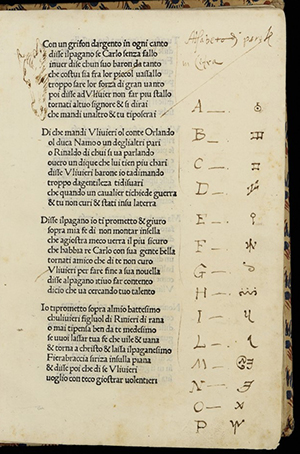 Con un grifon dargento in ogni canto
disse ilpagano se Carlo senza fallo
inuer disse chun suo baron da tanto
che costui sia fra lor piccol uassallo
troppo fare lor forza di gran uanto
poi disse ad Vliuier non far piu stallo
tornati altuo signore & si dirai
che mandi unaltro & tu tiposerai
Di che mandi Vliuieri ol conte Orlando
ol duca Namo o un deglialtri pari
o Rinaldo di chui si ua parlando
ouero un dique che lui tien piu chari
disse Vliuieri barone io tadimando
troppo dagentileza tidisuari
che quando un caualier tichiede guerra
& tu non curi & stati insu laterra
Disse ilpagano io ti prometto & giuro
sopra mia fe di non montar insella
che agiostra meco uerra il piu sicuro
che habbia re Carlo con sua gente bella
tornati amico che di te non curo
Vliuieri per fare fine a sua nouella
disse alpagano atiuo far contento
dicio che ua cercando tuo talento
Io tiprometto sopra almio battesimo
chuliuieri figluol di Rinieri di rana
o mai tipensa ben da te medesimo
se uuoi lassar tua fe che uile & uana
& torna a christo & lassa ilpaganesimo
Fierabraccia siriza insulla piana
& disse poi che di se Vliuieri
uoglio con teco giostrar uolentieri
Alfabeto di
in Cifra
A
B
C
D
E
F
G
H
I
L
M
N
O
P